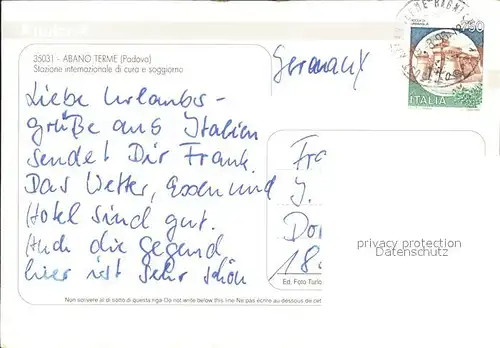 35031 - ABANO TERME (Padova)
Stazione internazionale di cura e soggiorno
Germany
ITALIA
Liebe Urlaubs-
grüße aus Italien
sendet Dir Frank.
Das Wetter, Essen und
Hotel sind gut.
Auch die gegend
hier ist sehr schön
Fra
J.
Dor
18
privacy protection
Datenschutz
Ed. Foto Turis
Non scrivere al di sotto di questa riga Do not write below this line Ne pas écrire au dessous de cet